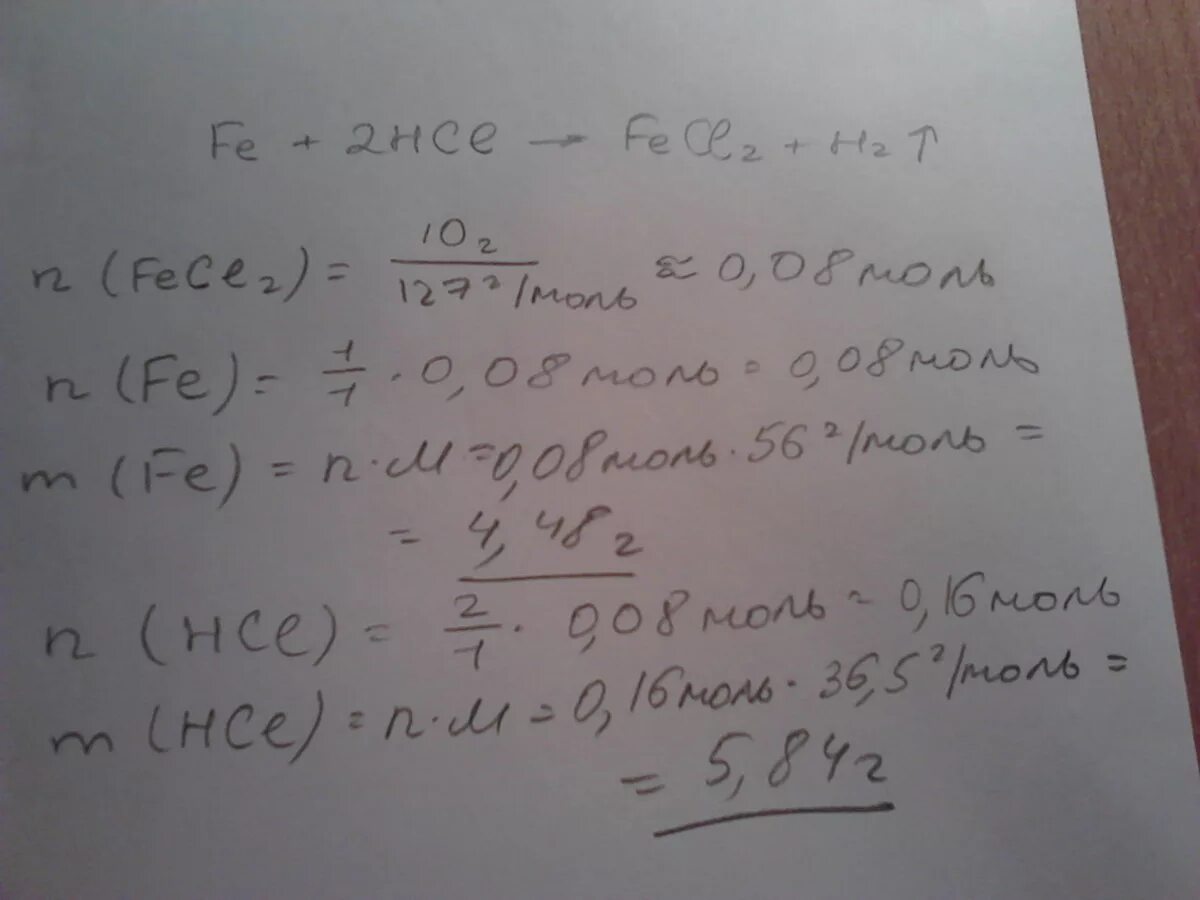 Fe + 2HCl → FeCl₂ + H₂↑
n (FeCl₂) = 10г / 127г/моль ≈ 0,08 моль
n (Fe) = 1/1 · 0,08 моль = 0,08 моль
m (Fe) = n · M = 0,08 моль · 56 г/моль =
= 4,48 г
n (HCl) = 2/1 · 0,08 моль = 0,16 моль
m (HCl) = n · M = 0,16 моль · 36,5 г/моль =
= 5,84 г